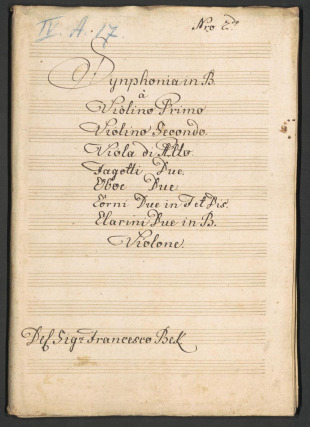 IV. A. 17.
Nro 2do
Synphonia in B.
à
Violino Primo
Violino Secondo.
Viola di Alto
Fagotti Due.
Oboe Due
Corni Due in F et Dis.
Clarini Due in B.
Violone.
Del Sigr Francesco Bek